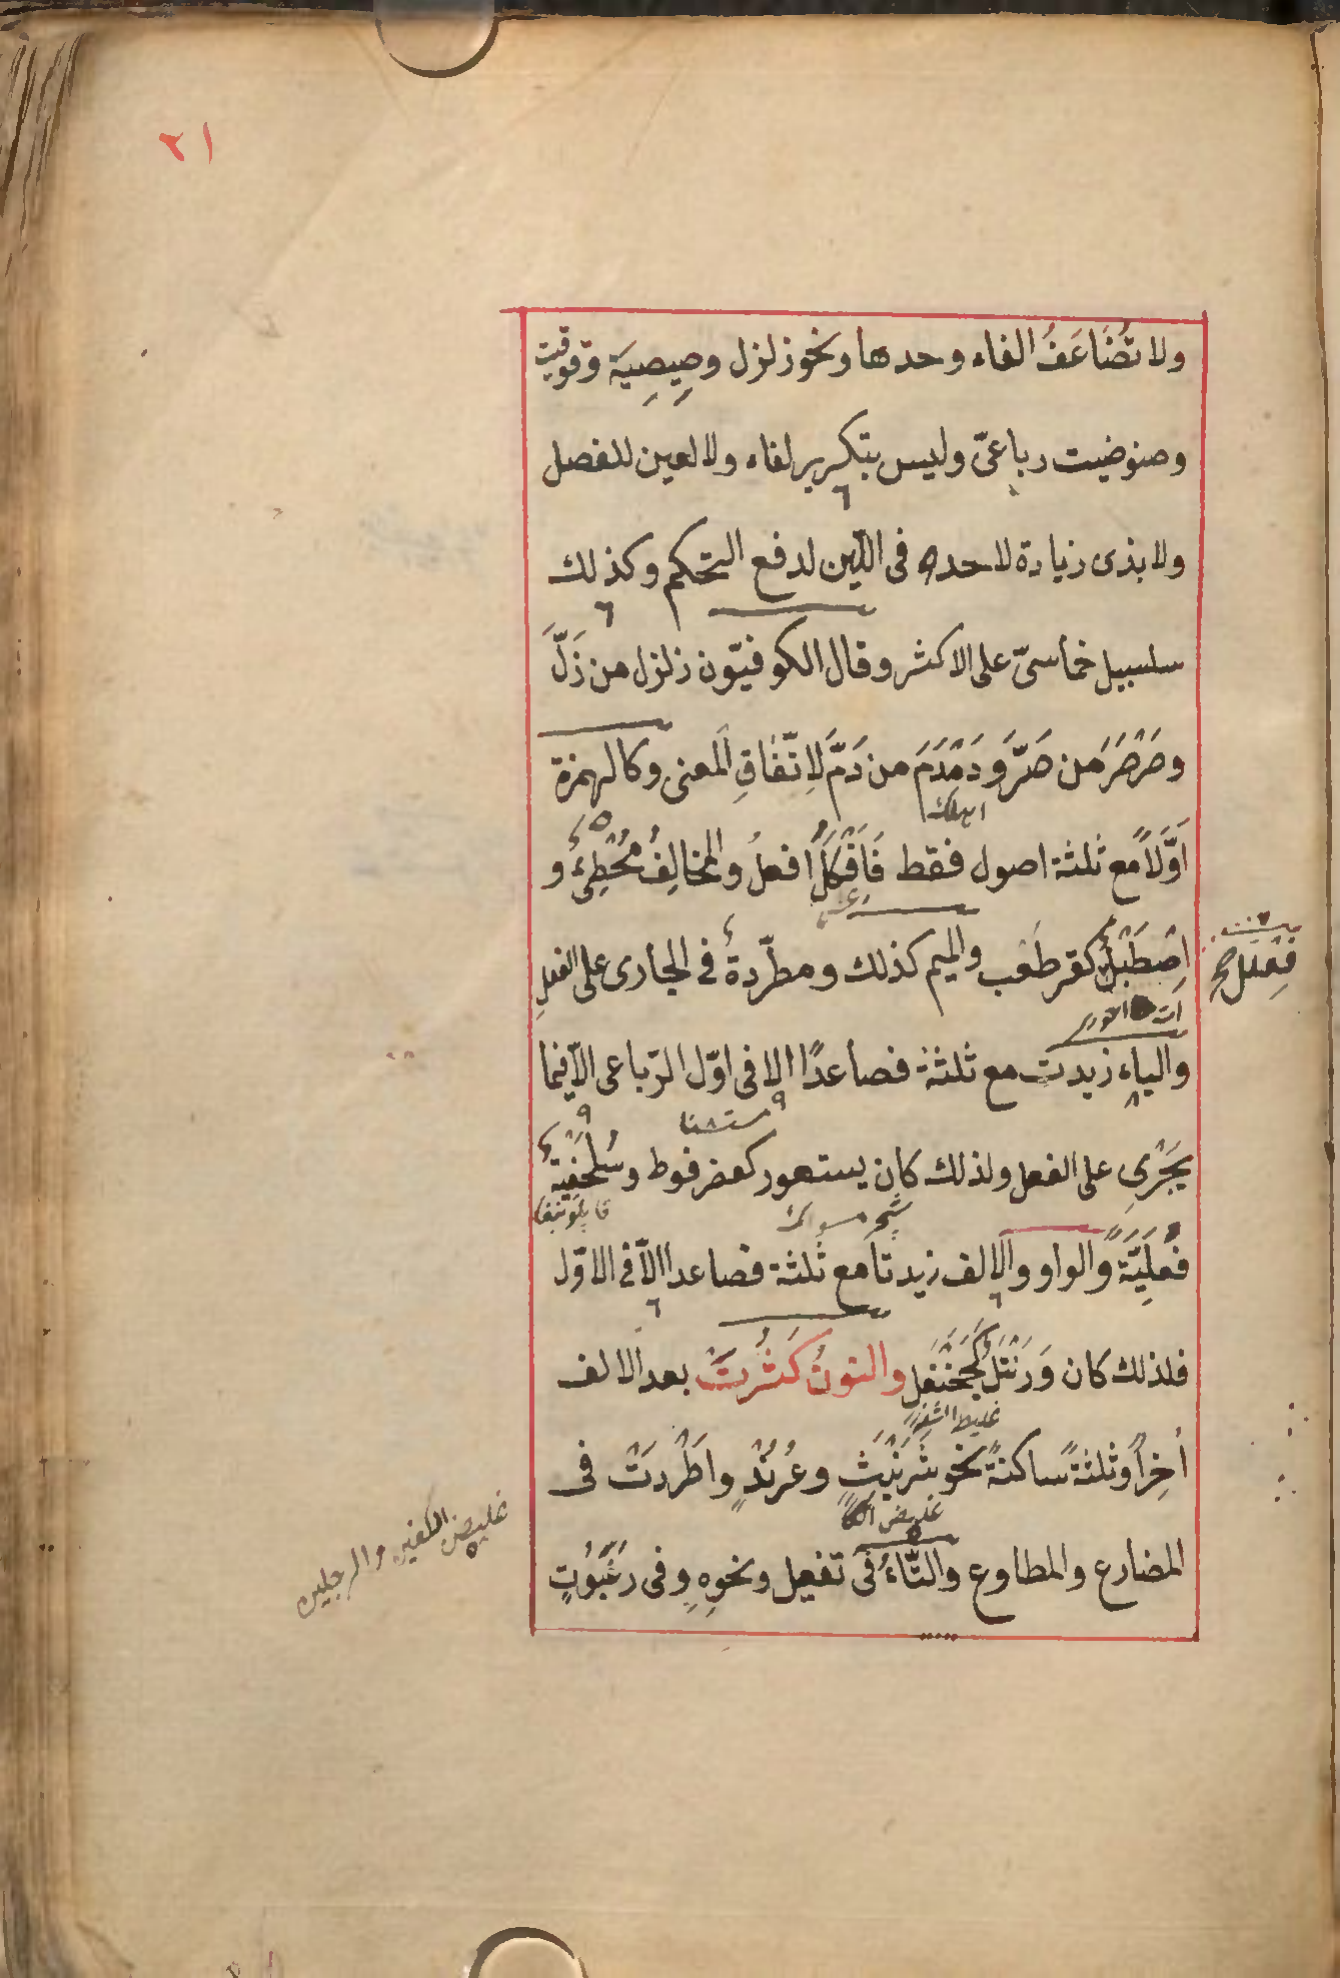 ٢١
ولا تُضَاعَفُ الفاء وحدها ونحو زلزل وصِيصِيَة وقوقيت
وضوضيت رباعىّ وليس بتكرير لفاء ولا لعين للفصل
ولا بذى زيادة لاحده فى اللّين لدفع التحكم وكذلك
سلسبيل خماسىّ على الاكثر وقال الكوفيّون زلزل من زَلَّ
وصَرْصَرَ من صَرَّ ودَمْدَمَ من دَمَّ لِاتّفاقِ المعنى وكالهمزة
اهلك
اَوَّلاً مع ثلثة اصول فقط فَاَفْكَلٌ افعلُ والمخالِفُ مُخْطِئٌ و
اِصْطَبْلٌ كقرطَعْب والميم كذلك ومطّردةٌ فى الجارى على الفعلِ
فِعْلَلٌ صح
والياء زيدت مع ثلثة فصاعدًا الا فى اوّل الرّباعى الّا فيما
يَجْرِى على الفعل ولذلك كان يستعور كعضرفوط وسُلَحْفِيَةٌ
فُعَلِّيَةً والواو والالف زيدتا مع ثلثة فصاعدا الّا فى الاوّل
فلذلك كان وَرَنْتَلٌ كَجَحَنْفَل والنونُ كَثُرَتْ بعد الالف
غليظ الشفة
اٰخِراً وثلثةً ساكنةً نحو شَرَنْبَثٍ وعُرُنْدٍ واطّردَتْ فى
غليض الكفين والرجلين
المضارع والمطاوع والتّاءُ فى تفعيل ونحوِهِ وفى رَغَبُوتٍ